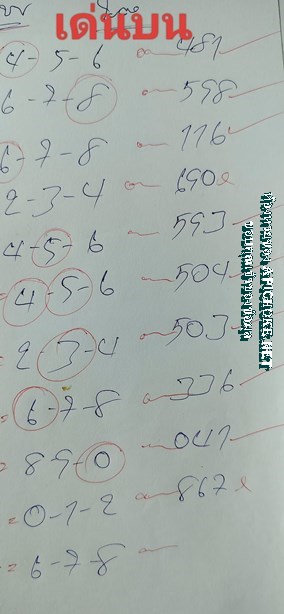 เด่นบน
4-5-6 481
6-7-8 598
6-7-8 116
2-3-4 690
4-5-6 593
4-5-6 504
2-3-4 503
= 6-7-8 336
= 8-9-0 041
= 0-1-2 867
= 6-7-8